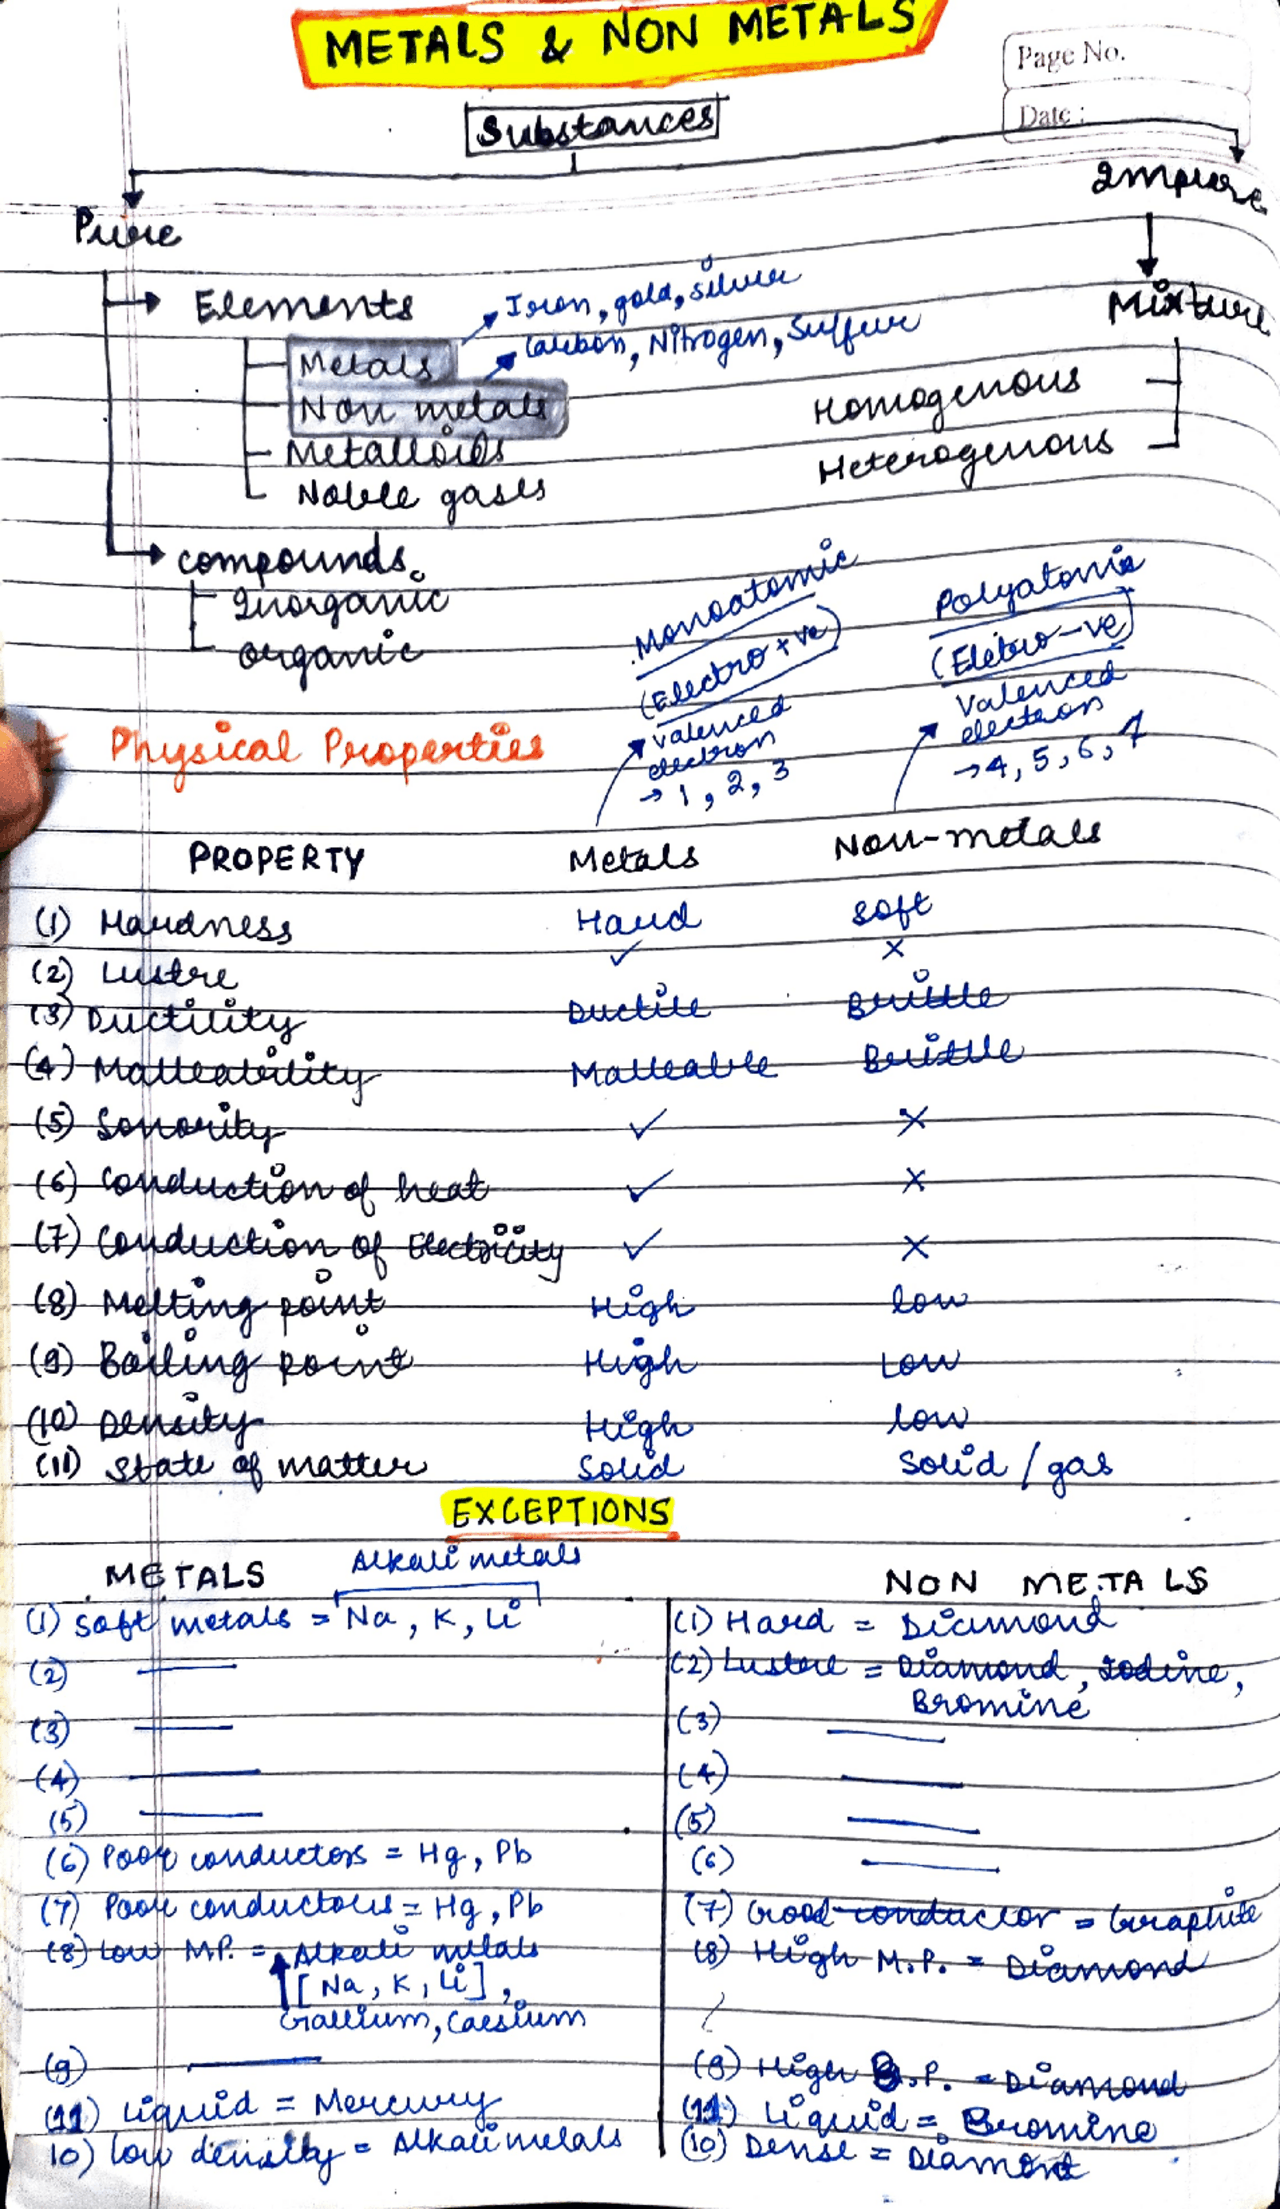 METALS & NON METALS
Page No.
Date :
Substances
Pure
Impure
Elements
Iron, gold, silver
Mixture
Metals
Carbon, Nitrogen, Sulfur
Non metals
Homogenous
Metalloids
Heterogenous
Noble gases
compounds
Inorganic
organic
Monoatomic
Polyatomic
(Electro +ve)
(Eletro -ve)
# Physical Properties
valenced
electron
→ 1, 2, 3
Valenced
electron
→ 4, 5, 6, 7
PROPERTY Metals Non-metals
(1) Hardness Hard soft
(2) Lustre ✓ ×
(3) Ductility Ductile Brittle
(4) Malleability Malleable Brittle
(5) Sonority ✓ ×
(6) Conduction of heat ✓ ×
(7) Conduction of Electricity ✓ ×
(8) Melting point High low
(9) Boiling point High Low
(10) Density High low
(11) State of matter Solid Solid / gas
EXCEPTIONS
METALS
Alkali metals
(1) Soft metals = Na, K, Li
(2) —
(3) —
(4) —
(5) —
(6) Poor conductors = Hg, Pb
(7) Poor conductors = Hg, Pb
(8) Low M.P. = Alkali metals
[Na, K, Li],
Gallium, Caesium
(9) —
(11) Liquid = Mercury
10) low density = Alkali metals
NON METALS
(1) Hard = Diamond
(2) Lustre = Diamond, Iodine,
Bromine
(3) —
(4) —
(5) —
(6) —
(7) Good conductor = Graphite
(8) High M.P. = Diamond
(9) High B.P. = Diamond
(11) Liquid = Bromine
(10) Dense = Diamond